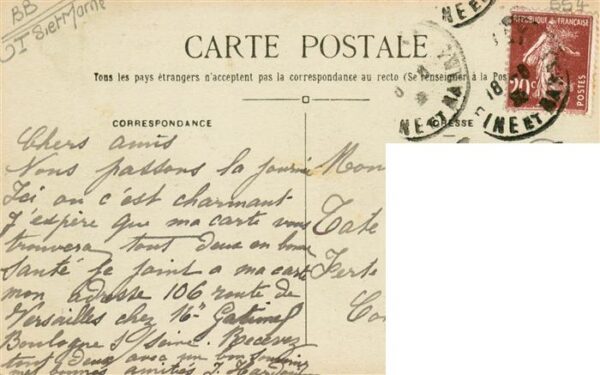 BB
Set Marne
654
CARTE POSTALE
Tous les pays étrangers n'acceptent pas la correspondance au recto (Se renseigner à la Pos
CORRESPONDANCE
ADRESSE
REPUBLIQUE FRANÇAISE
20c
POSTES
INE ET MA
18
NE ET MA
EINE ET MAR
Chers amis
Nous passons la journé
Ici ou c'est charmant
J'espère que ma carte vous
trouvera tout deux en bonne
santé je joint a ma carte
mon adresse 106 route de
Versailles chez Mr Gatinel
Boulogne S/Seine. Recevez
tout deux avec un bon souvenir
mes bonnes amitiés J.
Mon
Tate
Ferte
Co